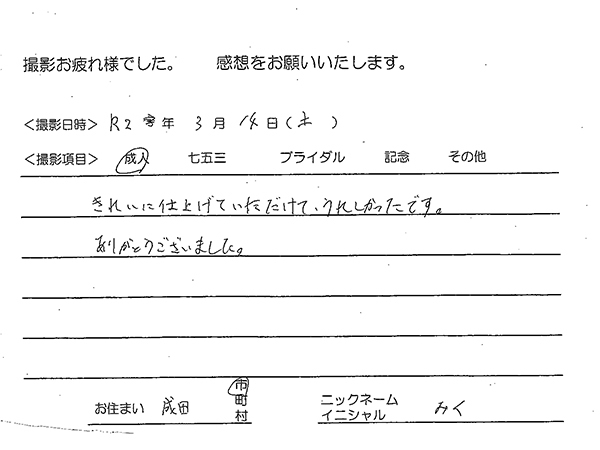 撮影お疲れ様でした。 感想をお願いいたします。
<撮影日時> R2 年 3 月 14 日 (土)
<撮影項目> 成人 七五三 ブライダル 記念 その他
きれいに仕上げていただけて、うれしかったです。
ありがとうございました。
お住まい 成田 市 町 村 ニックネーム イニシャル みく